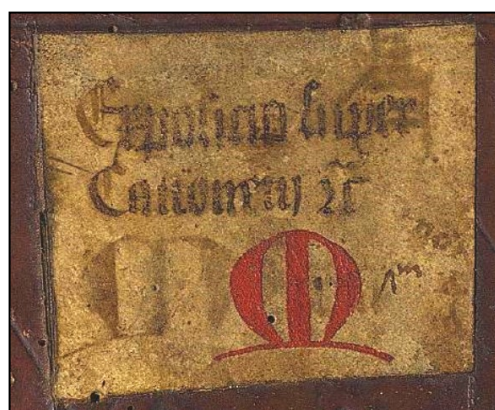 Exposicio super
Canonem ⁊c̃
M 1m